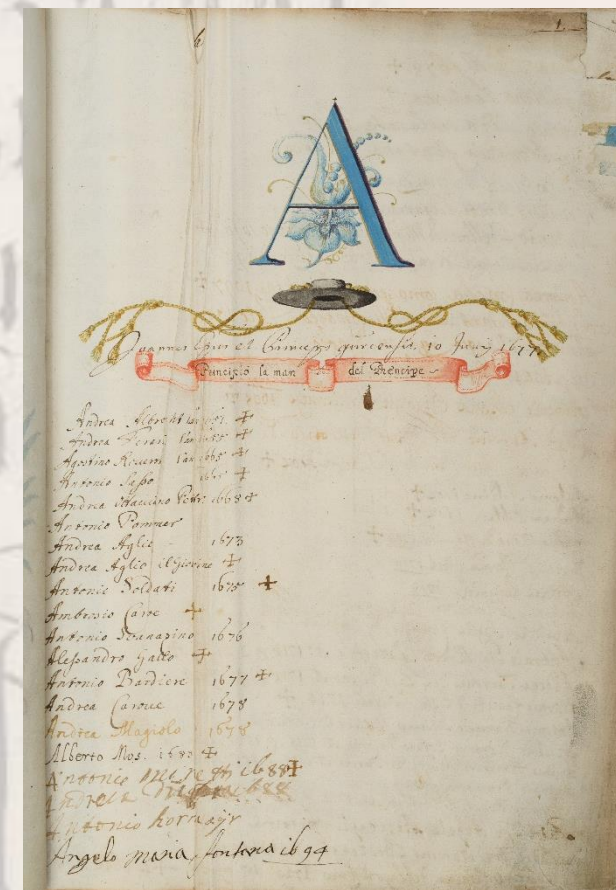 1.
A
Joannes et Princeps 10 Juny 1677
Principiò la man del Prencipe
Andrea Alberti +
Andrea +
Agostino 1665 +
Antonio Sasso +
Andrea 1668 +
Antonio Pommer
Andrea Aglio 1673
Andrea Aglio il Giovine +
Antonio Soldati 1675 +
Ambrosio Carove +
Antonio 1676
Alessandro Gallo +
Antonio Bardiere 1677 +
Andrea Caroue 1678
Andrea Magiolo 1678
Alberto Mos. 1683 +
Antonio 1688 +
Andrea 1688
Antonio hormayr
Angelo maria fontana 1694